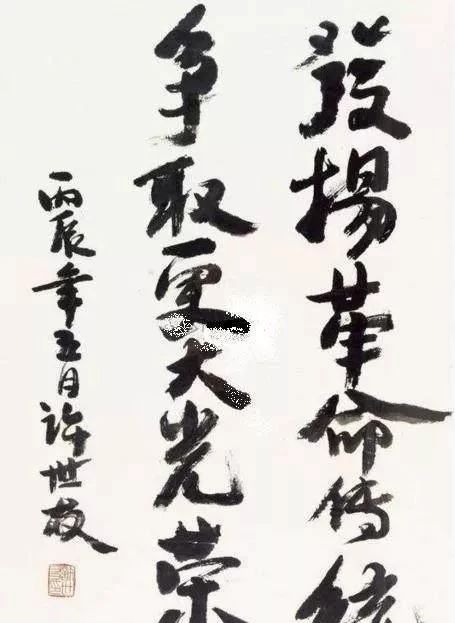 發揚革命傳統
争取更大光荣
丙辰年五月许世友